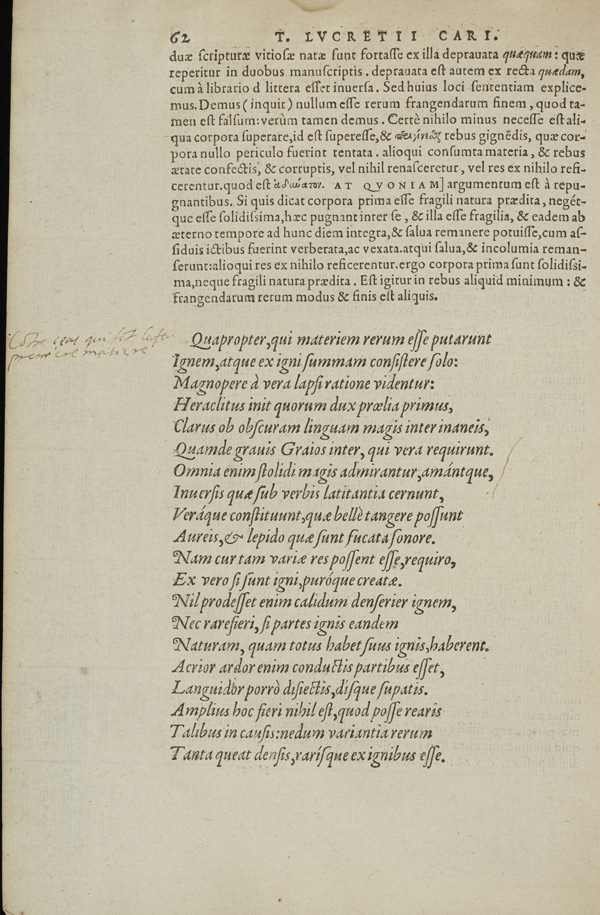 62 T. LVCRETII CARI.
duæ scripturæ vitiosæ natæ sunt fortasse ex illa deprauata quæquam: quæ
reperitur in duobus manuscriptis. deprauata est autem ex recta quædam,
cum à librario d littera esset inuersa. Sed huius loci sententiam explice-
mus. Demus (inquit) nullum esse rerum frangendarum finem, quod ta-
men est falsum: verùm tamen demus. Certè nihilo minus necesse est ali-
qua corpora superare, id est superesse, & rebus gignēdis, quæ cor-
pora nullo periculo fuerint tentata. alioqui consumta materia, & rebus
ætate confectis, & corruptis, vel nihil renasceretur, vel res ex nihilo refi-
cerentur. quod est ἀδύνατον. AT QVONIAM] argumentum est à repu-
gnantibus. Si quis dicat corpora prima esse fragili natura prædita, negét-
que esse solidissima, hæc pugnant inter se, & illa esse fragilia, & eadem ab
æterno tempore ad hunc diem integra, & salua remanere potuisse, cum as-
siduis ictibus fuerint verberata, ac vexata. atqui salua, & incolumia reman-
serunt: alioqui res ex nihilo reficerentur. ergo corpora prima sunt solidissi-
ma, neque fragili natura prædita. Est igitur in rebus aliquid minimum: &
frangendarum rerum modus & finis est aliquis.
premiere matiere
Quapropter, qui materiem rerum esse putarunt
Ignem, atque ex igni summam consistere solo:
Magnopere à vera lapsi ratione videntur:
Heraclitus init quorum dux prælia primus,
Clarus ob obscuram linguam magis inter inaneis,
Quamde grauis Graios inter, qui vera requirunt.
Omnia enim stolidi magis admirantur, amántque,
Inuersis quæ sub verbis latitantia cernunt,
Veráque constituunt, quæ bellè tangere possunt
Aureis, & lepido quæ sunt fucata sonore.
Nam cur tam variæ res possent esse, requiro,
Ex vero si sunt igni, puróque creatæ.
Nil prodesset enim calidum denserier ignem,
Nec rarefieri, si partes ignis eandem
Naturam, quam totus habet suus ignis, haberent.
Acrior ardor enim conductis partibus esset,
Languidor porrò disiectis, disque supatis.
Amplius hoc fieri nihil est, quod posse rearis
Talibus in causis: nedum variantia rerum
Tanta queat densis, rarísque ex ignibus esse.